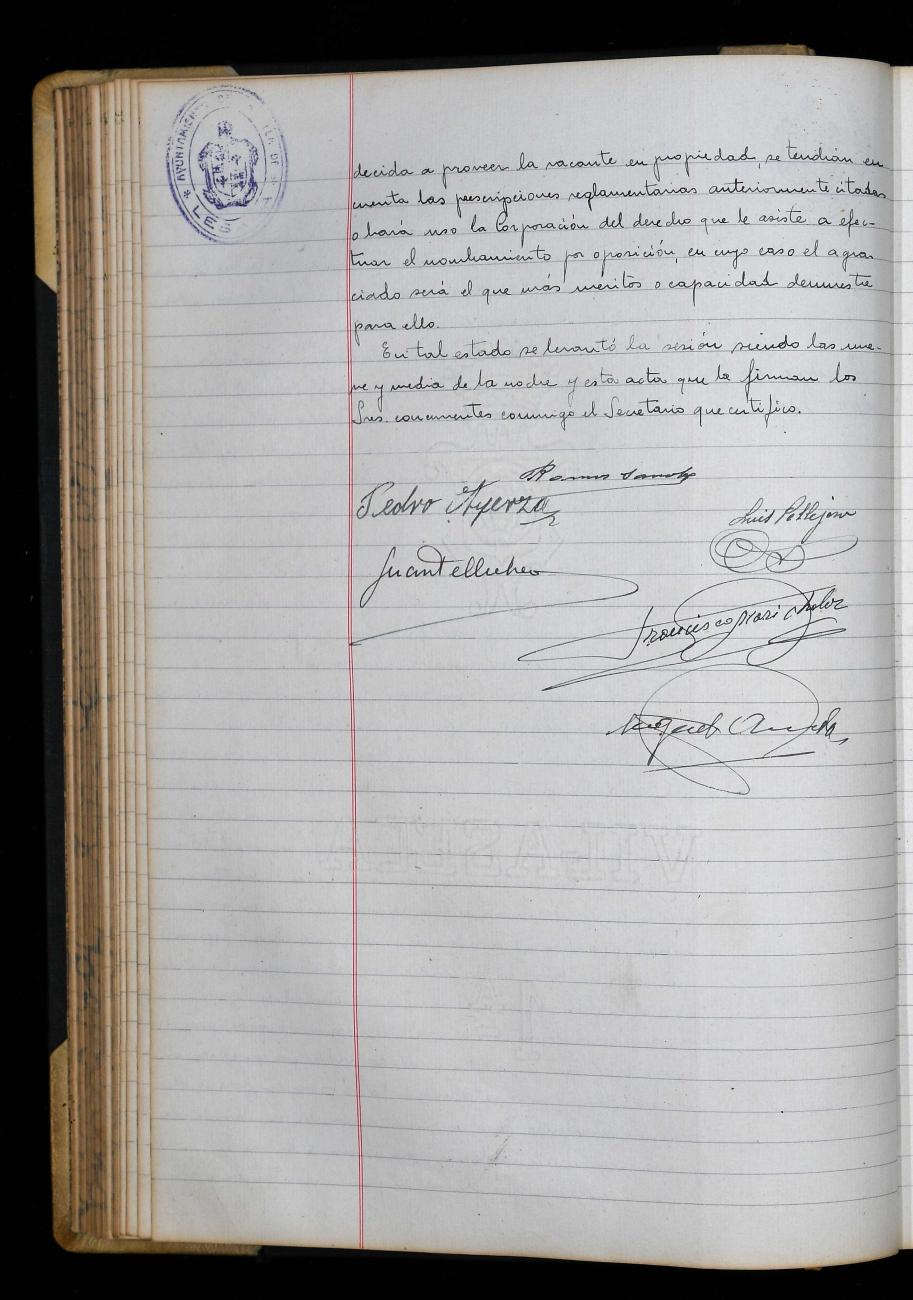 AYUNTAMIENTO DE
LES
decida a proveer la vacante en propiedad, se tendrán en
cuenta las prescripciones reglamentarias anteriormente citadas
o hará uso la Corporación del derecho que le asiste a efec-
tuar el nombramiento por oposición, en cuyo caso el agra-
ciado será el que más meritos o capacidad demuestre
para ello.
En tal estado se levantó la sesión siendo las nue-
ve y media de la noche y esta acta que la firman los
Sres. concurrentes conmigo el Secretario que certifico.
Ramos
Pedro Ayerza
Luis Pellejero
Juan
Francisco
Miguel
VILASECA
1ª